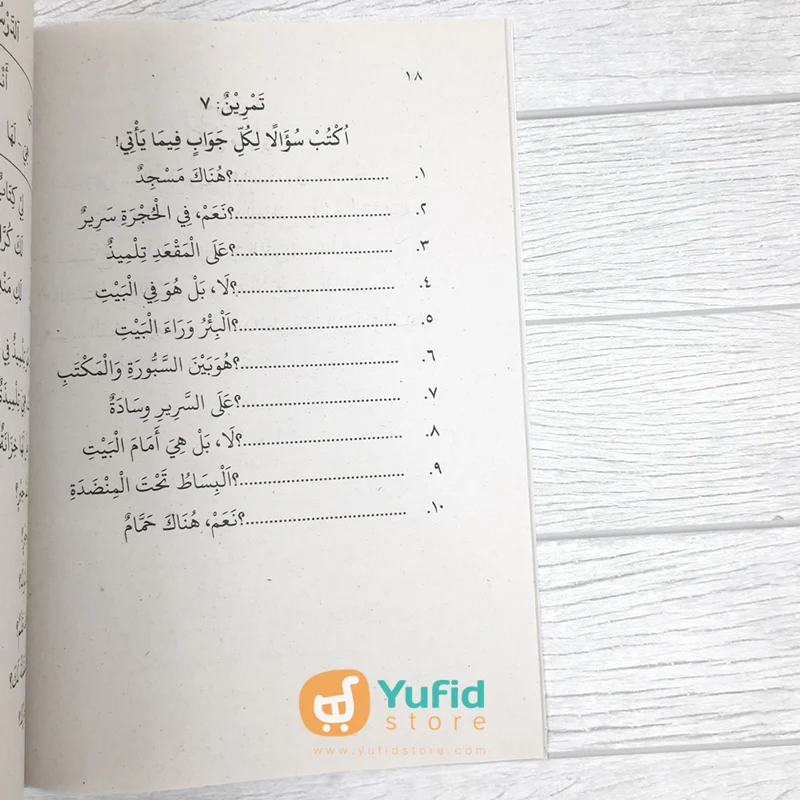 ١٨
تَمْرِيْنٌ: ٧
اُكْتُبْ سُؤَالًا لِكُلِّ جَوَابٍ فِيمَا يَأْتِي!
١. ..............................؟هُنَاكَ مَسْجِدٌ
٢. ..............................؟نَعَمْ، فِي الْحُجْرَةِ سَرِيرٌ
٣. ..............................؟عَلَى الْمَقْعَدِ تِلْمِيذٌ
٤. ..............................؟لَا، بَلْ هُوَ فِي الْبَيْتِ
٥. ..............................؟اَلْبِئْرُ وَرَاءَ الْبَيْتِ
٦. ..............................؟هُوَبَيْنَ السَّبُّورَةِ وَالْمَكْتَبِ
٧. ..............................؟عَلَى السَّرِيرِ وِسَادَةٌ
٨. ..............................؟لَا، بَلْ هِيَ أَمَامَ الْبَيْتِ
٩. ..............................؟اَلْبِسَاطُ تَحْتَ الْمِنْضَدَةِ
١٠. ..............................؟نَعَمْ، هُنَاكَ حَمَّامٌ
Yufid
store
www.yufidstore.com